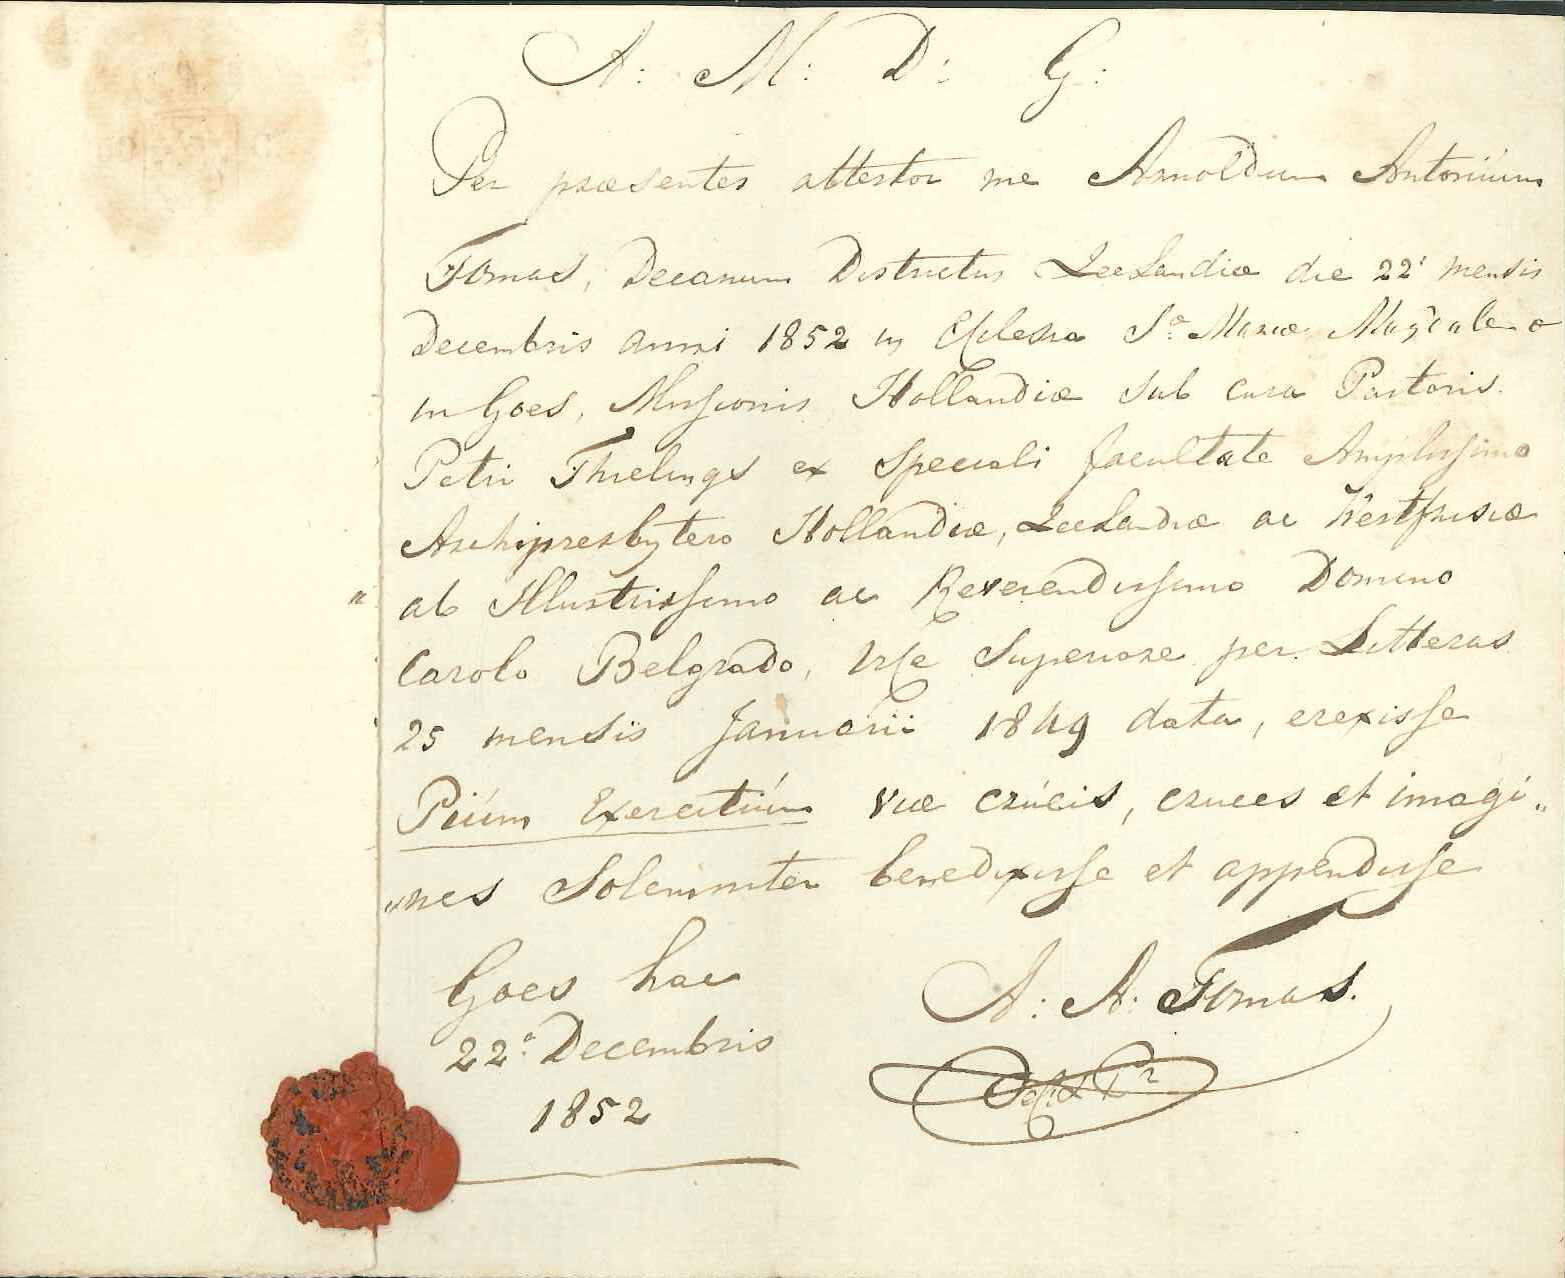 A: M: D: G:
Per præsentes attestor me Arnoldum Antoniúm
Tomas, Decanum Districtus Zeelandiæ die 22ª mensis
Decembris anni 1852 in Ecclesia Sª Mariæ Magdalenæ
in Goes, Missionis Hollandiæ sub cura Pastoris
Petri Thielings ex speciali facultate Amplissimo
Archipresbytero Hollandiæ, Zeelandiæ ac Westfrisiæ
" ab Illustrissimo ac Reverendissimo Domino
Carolo Belgrado, Vice Superiore per Litteras
25 mensis Januarii 1849 data, erexisse
Piúm Exercitiúm viæ crúcis, cruces et imagi„
„nes Solemniter benedixisse et appendisse
Goes hac
22ª Decembris
1852
A: A: Tomas.